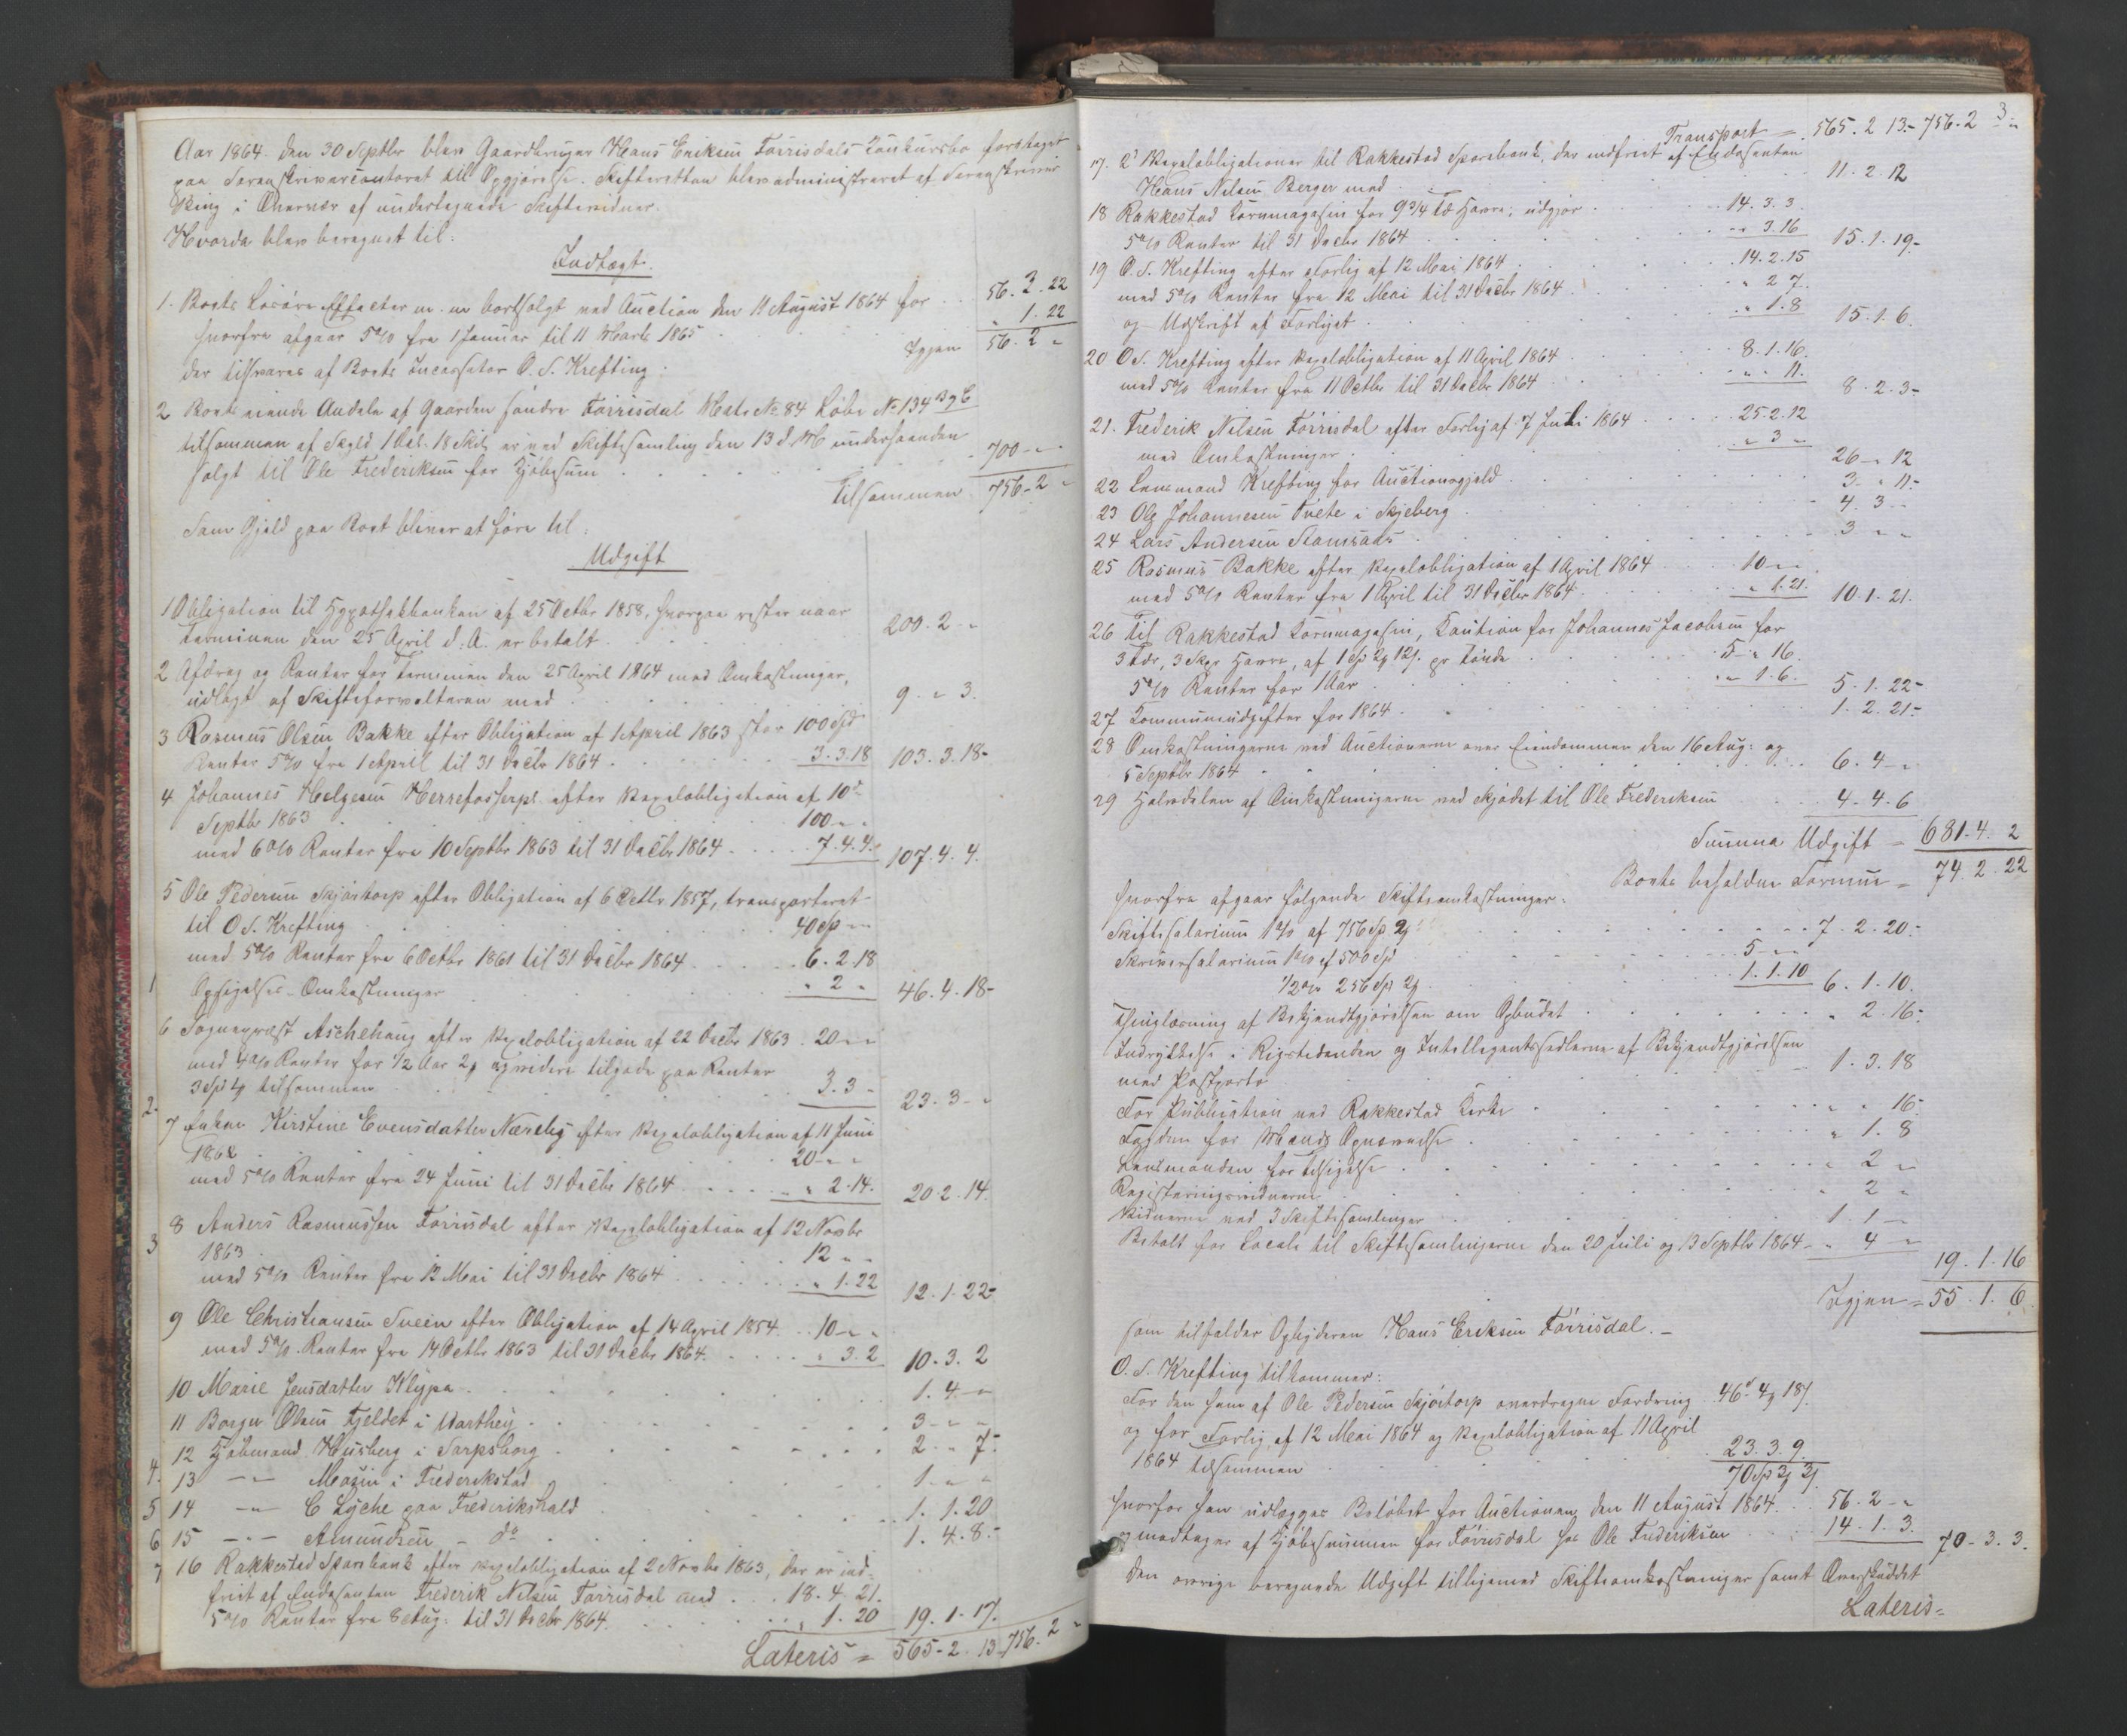 Aar 1864 den 30 Septbr blev Gaardbruger Hans Eriksen Törrisdals Konkursbo foretaget
paa Sorenskrivercontoret til Opgjørelse. Skifteretten blev administreret af Sorenskriver
i Overvær af undertegnede Skiftevidner.
Hvorda blev beregnet til:
Indtægt.
1. Boets Løsøre Effecter m. m. bortsolgt ved Auction den 11 August 1864 for . . 56. 3. 22
hvorfra afgaar 5 % fra 1 Januar til 11 Marts 1865 . " 1. 22
der tilsvares af Boets Incassator O. S. Krefting. Igjen 56. 2 "
2 Boets eiende Andele af Gaarden søndre Törrisdal Matr No 84 Løbe No 134 B og C
tilsammen af Skyld 1 Dal. 18 Skil, er ved Skiftesamling den 13 d. M. underhaanden
solgt til Ole Frederiksen for Kjøbesum . . . 700 - "
Tilsammen 756 - 2 "
Som Gjeld paa Boet bliver at føre til:
Udgift
1 Obligation til Hypothekbanken af 25 Octbr 1858, hvorpaa rester naar
Terminen den 25 April d. A. er betalt . . . 200. 2 - "
2 Afdrag og Renter for Terminen den 25 April 1864 med Omkostninger,
udlagt af Skifteforvalteren med . . . 9. " 3.
3 Rasmus Olsen Bakke efter Obligation af 1 April 1863 stor 100 Spd
Renter 5 % fra 1 April til 31 Decbr 1864 . . . 3. 3. 18 103. 3. 18 -
4 Johannes Helgesen efter Vexelobligation af 10de
Septbr 1863 . . . 100 - "
med 6 % Renter fra 10 Septbr 1863 til 31 Decbr 1864 . . . 7. 4. 4. 107. 4. 4.
5 Ole Pedersen Skjörtorp efter Obligation af 6 Octbr 1857, transporteret
til O. S. Krefting . . . 40 Sp - "
med 5 % Renter fra 6 Octbr 1861 til 31 Decbr 1864 . . . 6. 2. 18
1 Opsigelses-Omkostninger . . . " 2 " 46. 4. 18 -
6 Sognepræst Aschehoug efter Vexelobligation af 22 Decbr 1863 . 20 - "
med 4 % Renter for 1/2 Aar 2 og videre tilgode paa Renter
2. 3 Sp tilsammen . . . 3. 3 - 23. 3 - "
7 Enken Kirstine Evensdatter Næreby efter Vexelobligation af 11 Juni
1862 . . . 20 - "
med 5 % Renter fra 24 Juni til 31 Decbr 1864 . . . " 2. 14. 20. 2. 14.
8 Anders Rasmussen Törrisdal efter Vexelobligation af 12 Novbr
3 1863 . . . 12 " "
med 5 % Renter fra 12 Mai til 31 Decbr 1864 . . . " 1. 22 12. 1. 22 -
9 Ole Christiansen Sveen efter Obligation af 14 April 1854 . . 10 - "
med 5 % Renter fra 14 Octbr 1863 til 31 Decbr 1864. . . " 3. 2 10. 3. 2
10 Marie Jensdatter Klypa . . . 1. 4 - "
11 Borger Olsen Fjeldet i Varthey . . . 3 - " -
12 Kjøbmand Husberg i Sarpsborg . . . 2. " 7.
4. 13 - " - i Frederikstad . . . 1 - " "
5 14 - " - C Lyche paa Frederikshald . . . 1. 1. 20
6 15 - " - Amundsen - do . . . 1. 4. 8. -
7 16 Rakkestad Sparebank efter Vexelobligation af 2 Novbr 1863, der er ind-
friet af Endosenten Frederik Nilsen Törrisdal med . . . 18. 4. 21.
5 % Renter fra 8 Aug. til 31 Decbr 1864. . . . " 1. 20 19. 1. 17.
Lateris = 565 - 2. 13 - 756. 2 "
3
Transport = 565. 2 13. - 756. 2 "
17. 2 Vexelobligationer til Rakkestad Sparebank, der indfriet af Endosenten
Hans Nilsen Berger med . . . 11. 2. 12
18 Rakkestad Kornmagasin for 9 3/4 Td Havre, udgjør . . . 14. 3. 3
5 % Renter til 31 Decbr 1864 . . . " 3. 16 15. 1. 19 -
19 O. S. Krefting efter Forlig af 12 Mai 1864 . . . 14. 2. 15
med 5 % Renter fra 12 Mai til 31 Decbr 1864 . . . " 2 7.
og Udskrift af Forliget . . . " 1. 8 15. 1. 6.
20 O. S. Krefting efter Vexelobligation af 11 April 1864 . . . 8. 1. 16.
med 5 % Renter fra 11 Octbr til 31 Decbr 1864 . . . " " 11. 8. 2. 3 -
21. Frederik Nilsen Törrisdal efter Forlig af 7 Juli 1864 . . . 25. 2. 12
med Omkostninger . . . " 3 " 26 - " 12
22 Lensmand Krefting for Auctionsgjeld . . . 3 - " 11 -
23 Ole Johannesen Tvete i Skjeberg . . . 4. 3 - "
24 Lars Andersen . . . 3 " "
25 Rasmus Bakke efter Vexelobligation af 1 April 1864 . . . 10 - "
med 5 % Renter fra 1 April til 31 Decbr 1864 . . . " 1. 21. 10. 1. 21.
26 Til Rakkestad Kornmagasin, Caution for Johannes Jacobsen for
3 Tdr, 3 Skpr Havre, af 1 Sp 2 12 pr Tønde . . . 5 " 16.
5 % Renter for 1 Aar . . . " 1. 6. 5. 1. 22 -
27 Kommuneudgifter for 1864 . . . 1. 2. 21 -
28 Omkostningerne ved Auctionerne over Eiendommen den 16 Aug. og
5 Septbr 1864 . . . 6. 4 - "
29 Halvdelen af Omkostningerne ved Skjødet til Ole Frederiksen . . . 4. 4. 6
Summa Udgift = 681. 4. 2
Boets beholdne Formue = 74. 2. 22
hvorfra afgaar følgende Skifteomkostninger:
Skiftesalarium 1 % af 756 Sp 2 . . . 7. 2. 20 -
Skriversalarium 1 % af 500 Sp . . . 5 - "
1/2 % 256 Sp 2 . . . 1. 1. 10 6. 1. 10.
Thinglæsning af Bekjendtgjørelsen om Opbudet . . . " 2. 16 -
Indrykkelse i Rigstidenden og Intelligentssedlerne af Bekjendtgjørelsen
med Postporto . . . 1. 3. 18
For Publication ved Rakkestad Kirke . . . " " 16.
. . . " 1. 8
Lensmanden for Tilsigelse . . . " 2 "
Registeringsvidnerne . . . " 2 "
Vidnerne ved 3 Skiftesamlinger . . . 1. 1 - "
Betalt for Locale til Skiftesamlingerne den 20 Juli og 13 Septbr 1864 - " 4 " 19. 1. 16
Igjen = 55. 1. 6.
som tilfalder Opbyderen Hans Eriksen Törrisdal. -
O. S. Krefting tilkommer:
For den ham af Ole Pedersen Skjörtorp overdragne Fordring 46 4 18
og for Forlig af 12 Mai 1864 og Vexelobligation af 11 April
1864 tilsammen . . . 23. 3. 9.
70 Sp 3 3
hvorfor ham udlægges Beløbet for Auctionen den 11 August 1864 . . . 56. 2 - "
og modtager af Kjøbesummen for Törrisdal hos Ole Frederiksen . . . 14. 1. 3. 70 - 3. 3.
Den øvrige beregnede Udgift tilligemed Skifteomkostninger samt Overskuddet
Lateris =